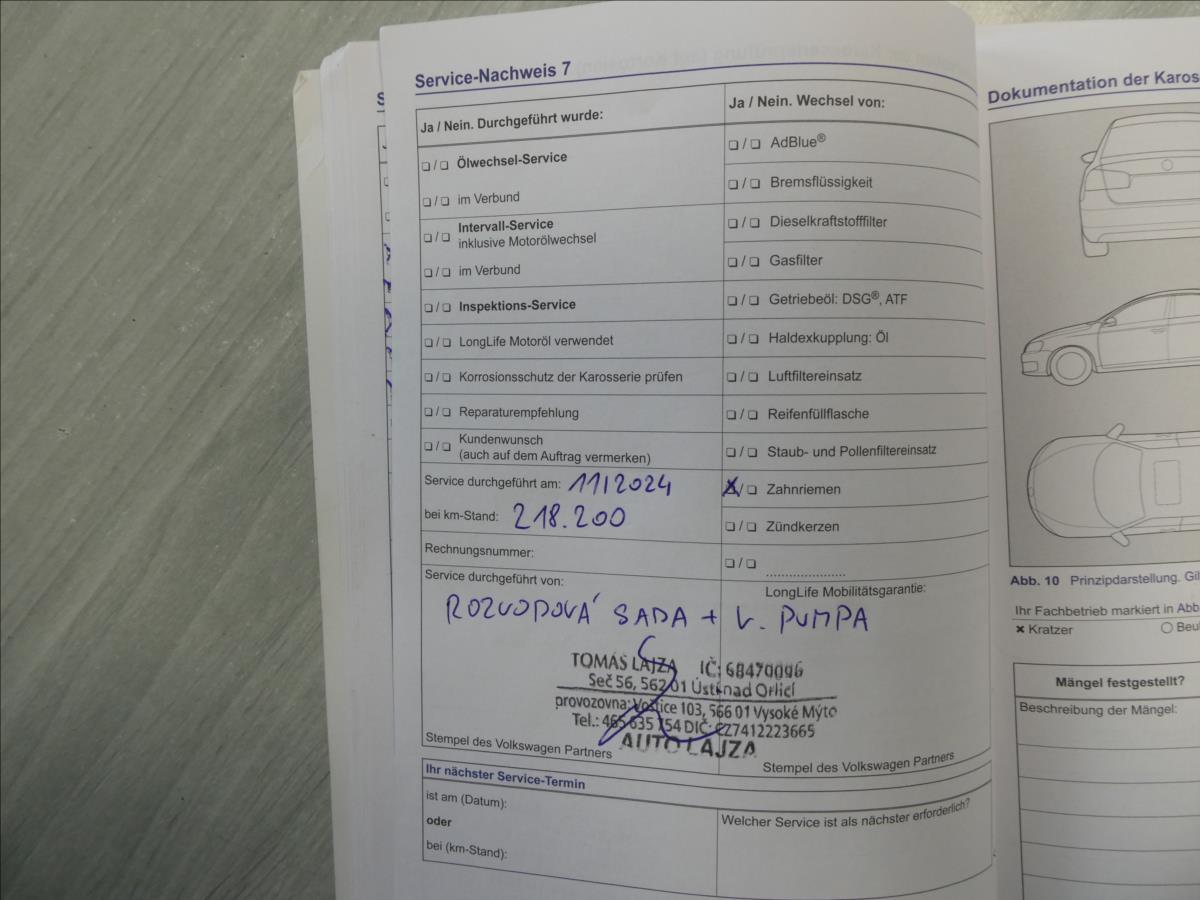 Service-Nachweis 7
Ja / Nein. Durchgeführt wurde:
❏ / ❏ Ölwechsel-Service
❏ / ❏ im Verbund
❏ / ❏ Intervall-Service
inklusive Motorölwechsel
❏ / ❏ im Verbund
❏ / ❏ Inspektions-Service
❏ / ❏ LongLife Motoröl verwendet
❏ / ❏ Korrosionsschutz der Karosserie prüfen
❏ / ❏ Reparaturempfehlung
❏ / ❏ Kundenwunsch
(auch auf dem Auftrag vermerken)
Service durchgeführt am: 11/2024
bei km-Stand: 218.200
Rechnungsnummer:
Ja / Nein. Wechsel von:
❏ / ❏ AdBlue®
❏ / ❏ Bremsflüssigkeit
❏ / ❏ Dieselkraftstofffilter
❏ / ❏ Gasfilter
❏ / ❏ Getriebeöl: DSG®, ATF
❏ / ❏ Haldexkupplung: Öl
❏ / ❏ Luftfiltereinsatz
❏ / ❏ Reifenfüllflasche
❏ / ❏ Staub- und Pollenfiltereinsatz
X / ❏ Zahnriemen
❏ / ❏ Zündkerzen
❏ / ❏ ......................
Service durchgeführt von:
LongLife Mobilitätsgarantie:
ROZVODOVÁ SADA + V. PUMPA
TOMÁŠ LAJZA IČ: 68470096
Seč 56, 562 01 Ústí nad Orlicí
provozovna: Vostice 103, 566 01 Vysoké Mýto
Tel.: 465 635 154 DIČ: CZ7412223665
AUTO LAJZA
Stempel des Volkswagen Partners
Stempel des Volkswagen Partners
Ihr nächster Service-Termin
ist am (Datum):
oder
bei (km-Stand):
Welcher Service ist als nächster erforderlich?
Dokumentation der Karos
Abb. 10 Prinzipdarstellung. Gil
Ihr Fachbetrieb markiert in Abb
✖ Kratzer
○ Beul
Mängel festgestellt?
Beschreibung der Mängel: